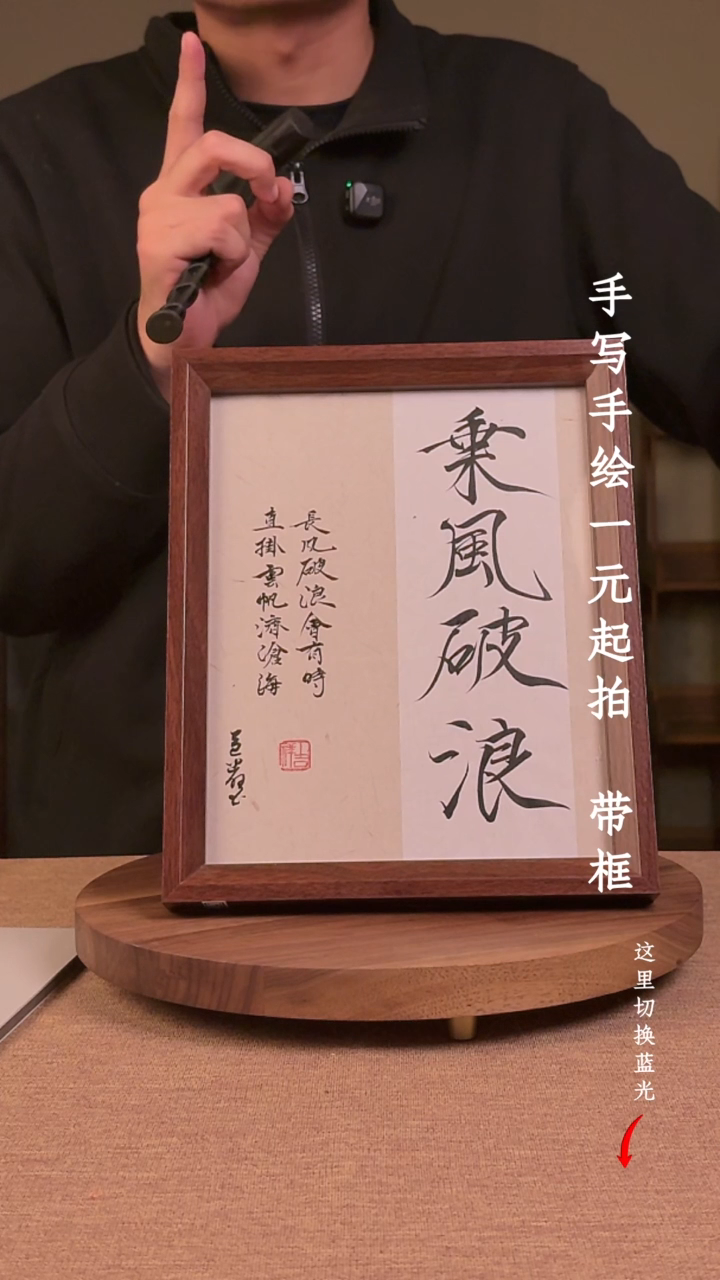 乗風破浪
長风破浪會有時
直掛雲帆濟滄海
手写手绘一元起拍 带框
这里切换蓝光